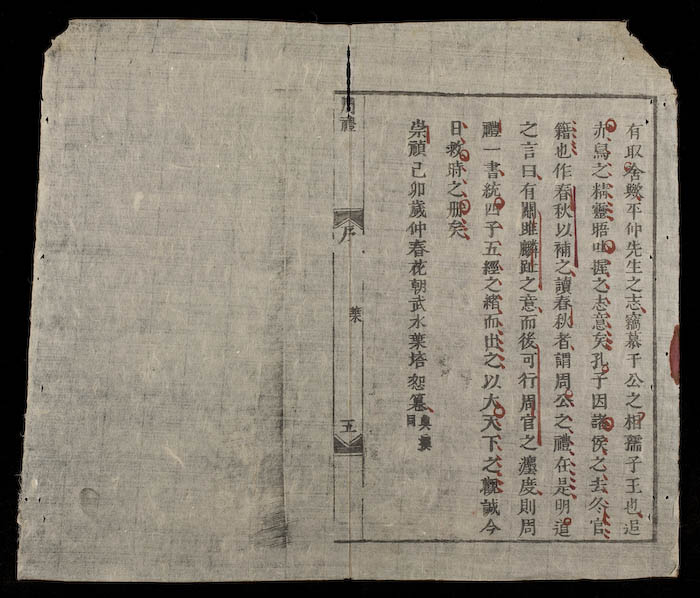 有取舍歟平仲先生之志竊慕于公之相孺子王也追
赤烏之精靈晤
握之志意矣孔子因諸侯之去冬官
籍也作春秋以補之讀春秋者謂周公之禮在是明道
之言曰有關雎麟趾之意而後可行周官之灋度則周
禮一書統四子五經之緒而出之以大天下之觀誠今
日救時之册矣
崇禎己卯歲仲春花朝武水葉培恕纂
周禮
序
葉
五